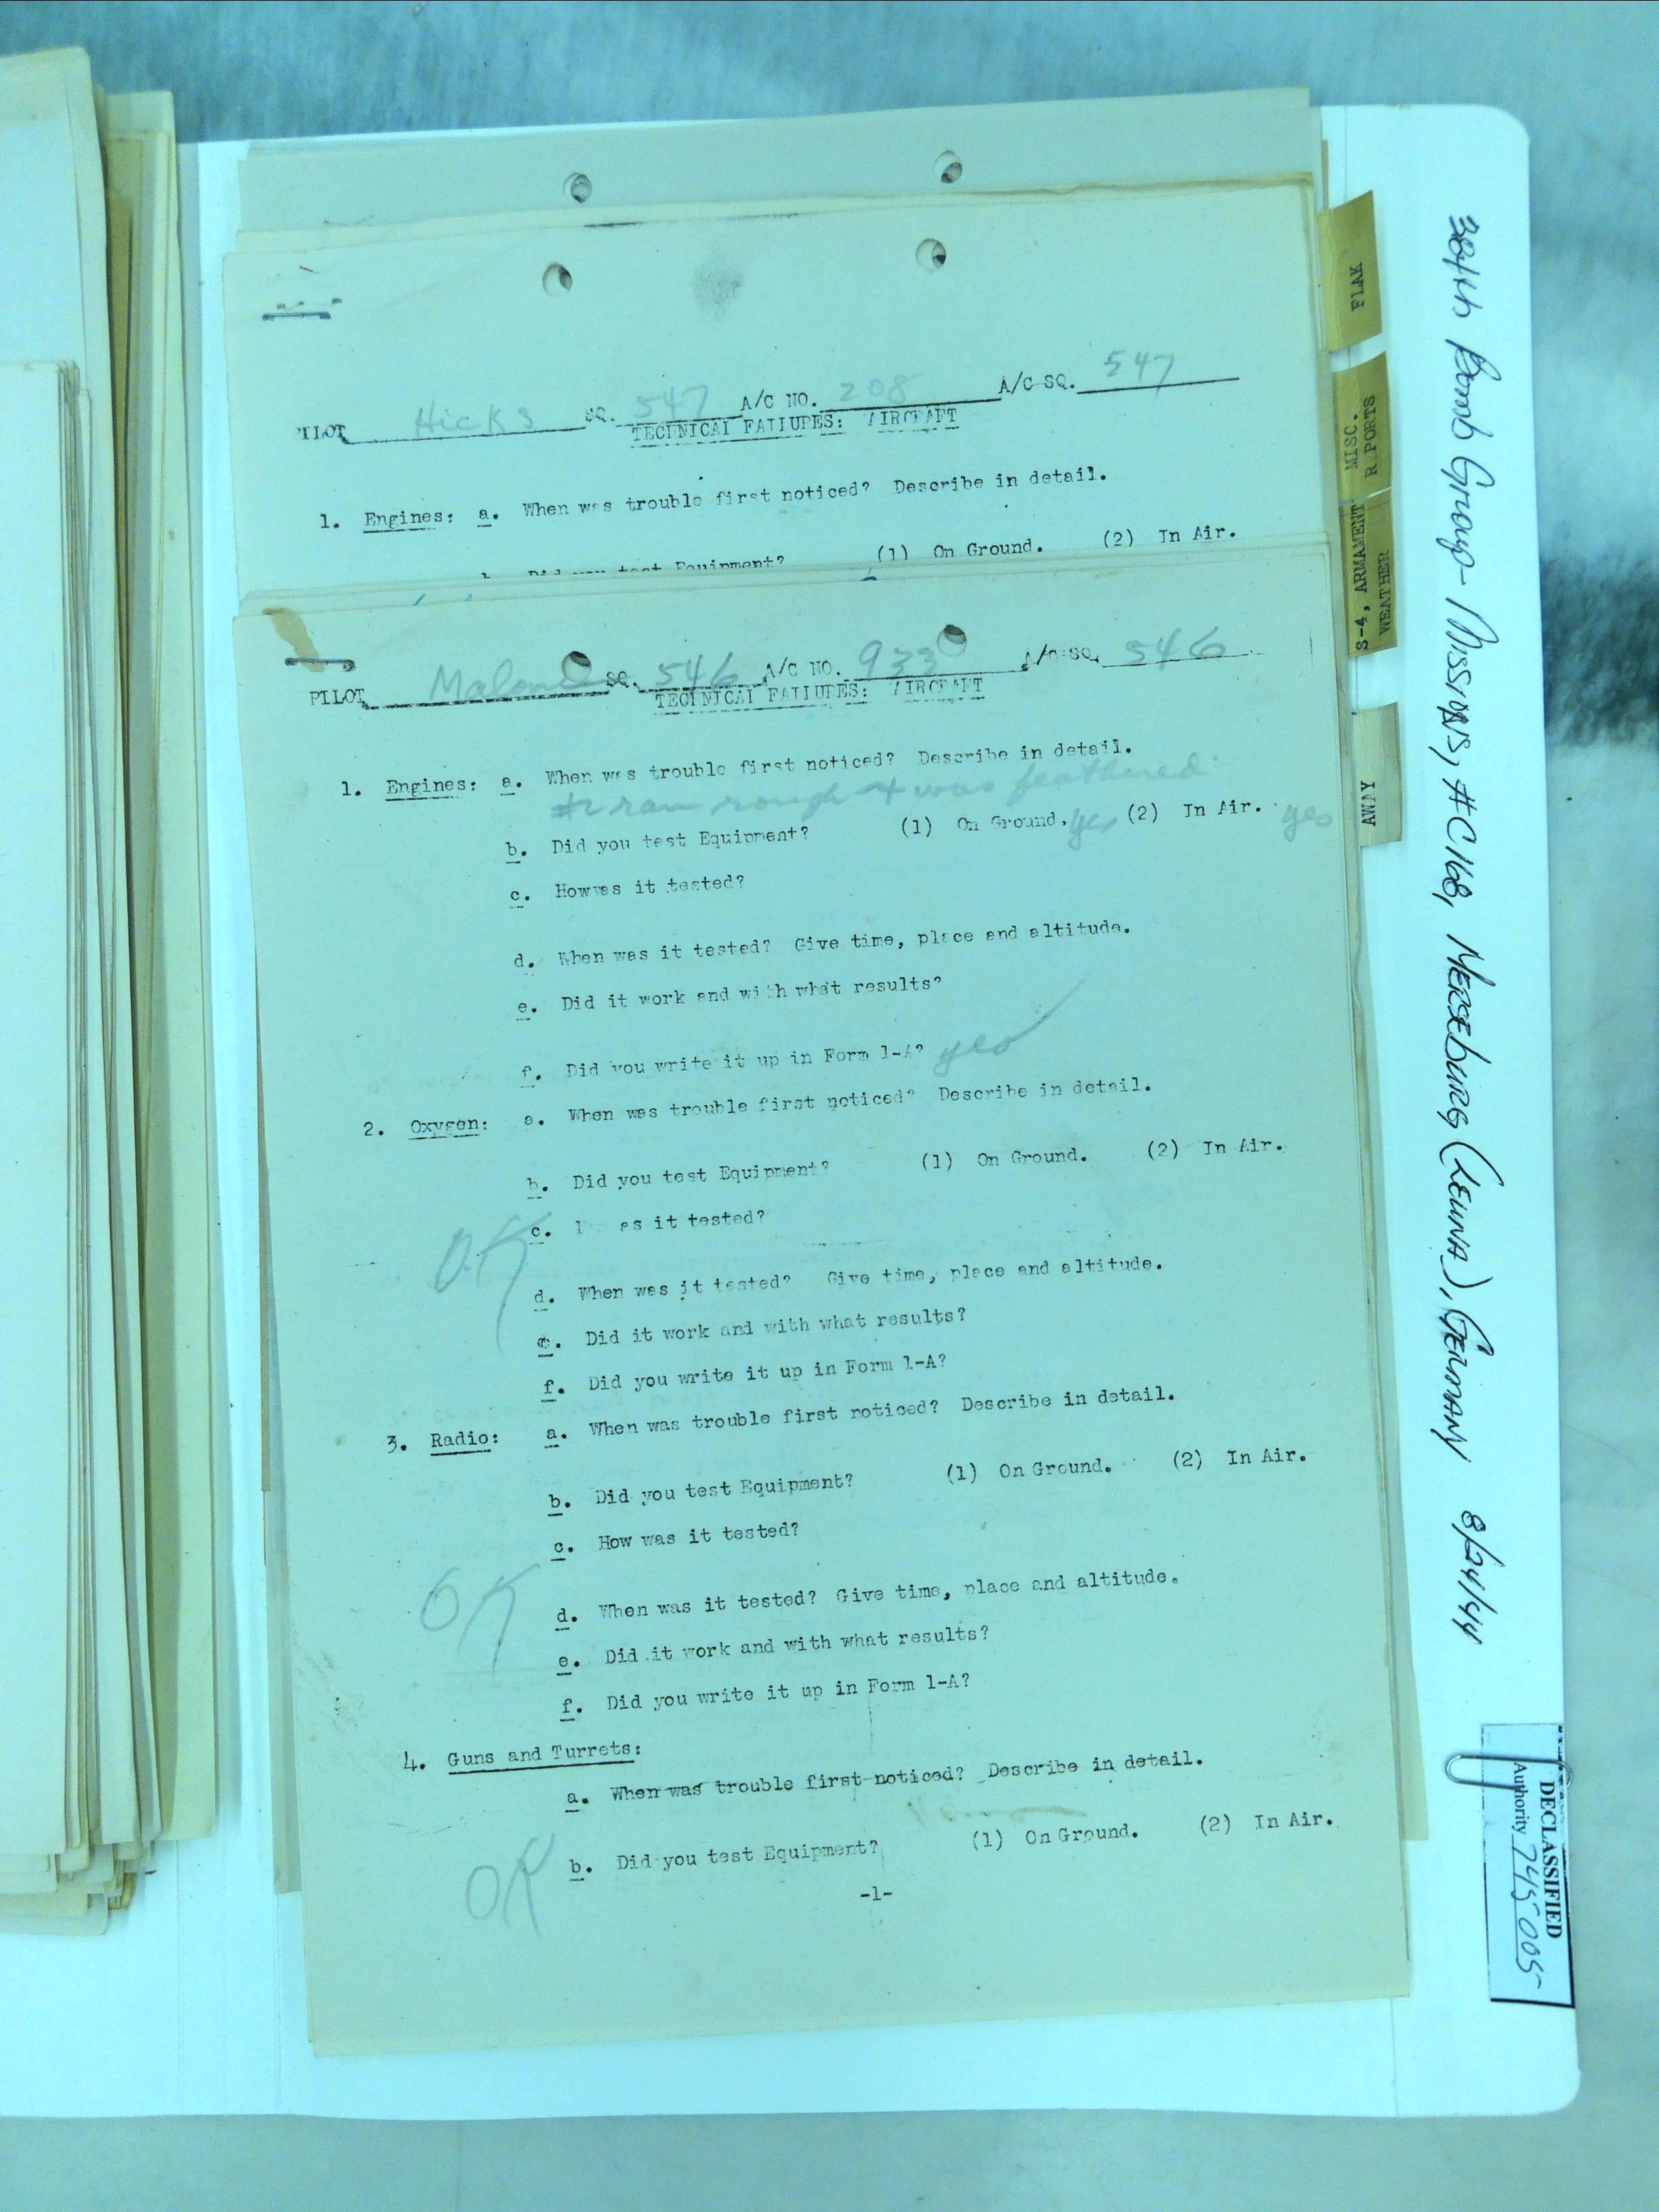 PILOT Hicks SQ. 547 A/C NO. 208 A/C SQ. 547
TECHNICAL FAILURES: AIRCRAFT
1. Engines: a. When was trouble first noticed? Describe in detail.
b. Did you test Equipment? (1) On Ground. (2) In Air.
PILOT SQ. 546 A/C NO. 933 A/C SQ. 546
TECHNICAL FAILURES: AIRCRAFT
1. Engines: a. When was trouble first noticed? Describe in detail.
#2 ran rough + was feathered
b. Did you test Equipment? (1) On Ground. yes (2) In Air. yes
c. How was it tested?
d. When was it tested? Give time, place and altitude.
e. Did it work and with what results?
f. Did you write it up in Form 1-A? yes
2. Oxygen: a. When was trouble first noticed? Describe in detail.
b. Did you test Equipment? (1) On Ground. (2) In Air.
c. as it tested?
OK
d. When was it tested? Give time, place and altitude.
e. Did it work and with what results?
f. Did you write it up in Form 1-A?
3. Radio: a. When was trouble first noticed? Describe in detail.
b. Did you test Equipment? (1) On Ground. (2) In Air.
c. How was it tested?
OK
d. When was it tested? Give time, place and altitude.
e. Did it work and with what results?
f. Did you write it up in Form 1-A?
4. Guns and Turrets:
a. When was trouble first noticed? Describe in detail.
OK
b. Did you test Equipment? (1) On Ground. (2) In Air.
-1-
FLAK
MISC.
REPORTS
S-4, ARMAMENT
WEATHER
AWAY
384th Bomb Group - Missions, #C168, Merseburg (Leuna), Germany 8/24/44
DECLASSIFIED
Authority 745005